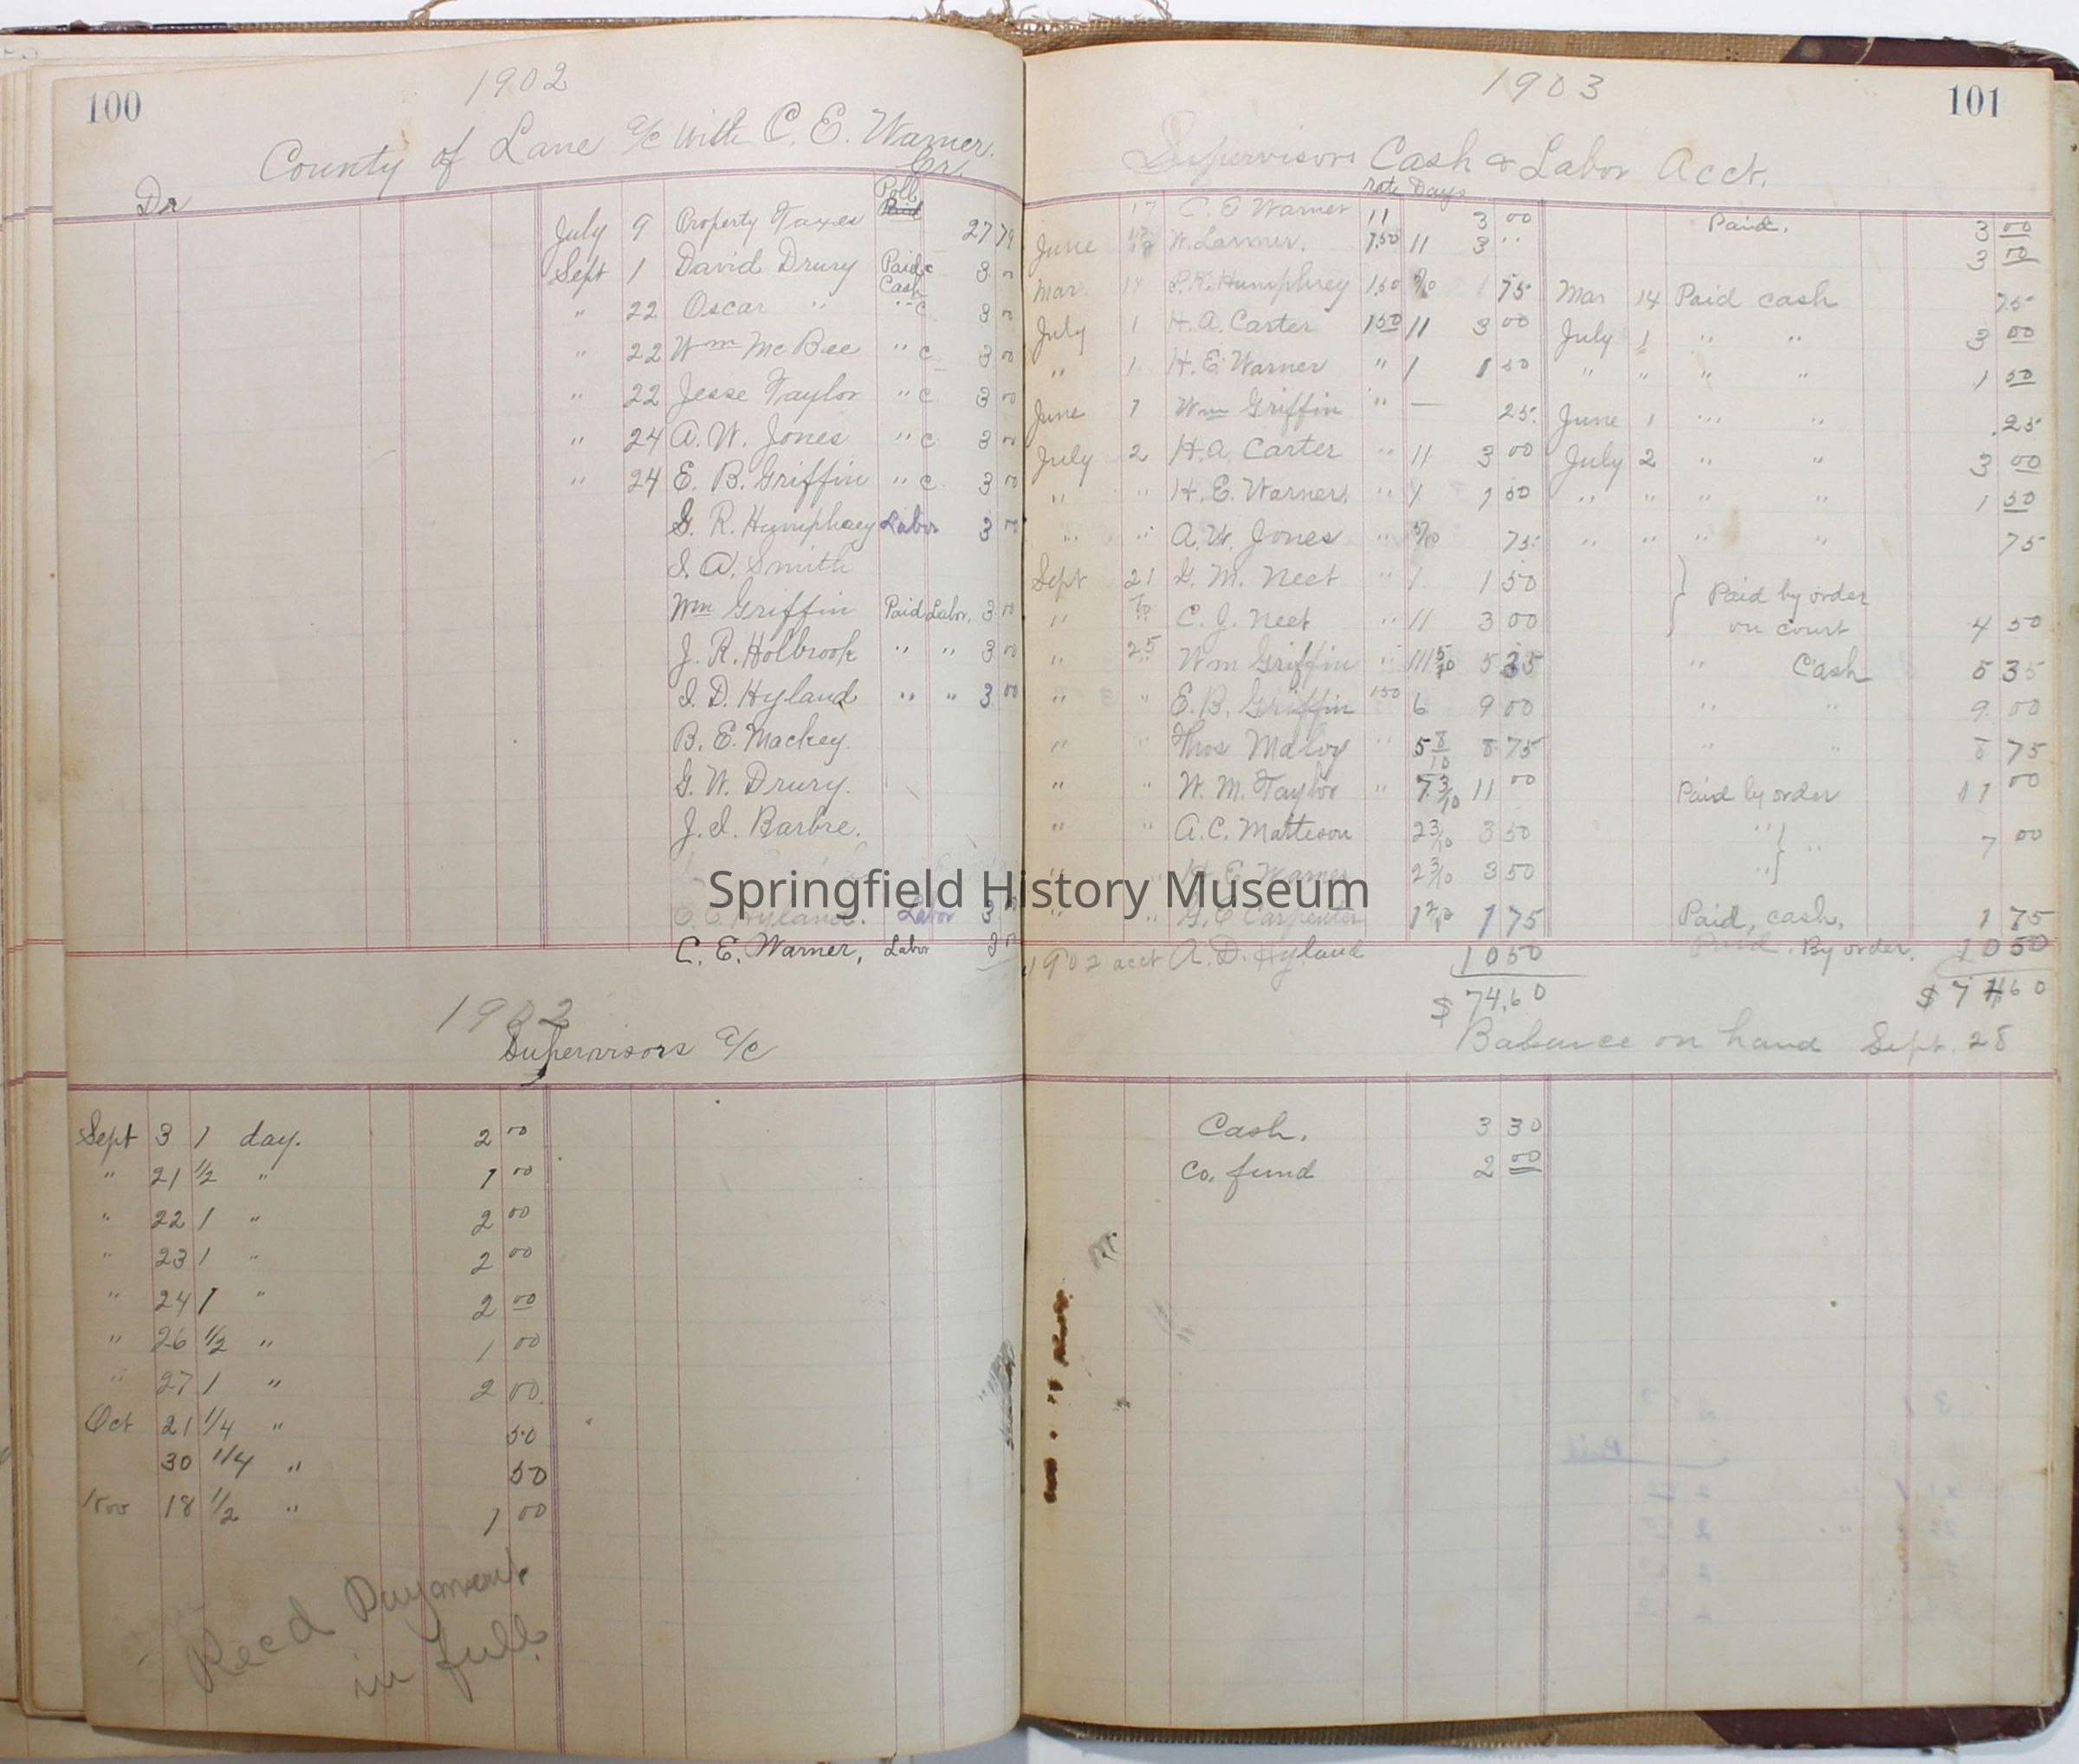 100
1902
County of Lane a/c with C. E. Warner.
Dr
Cr.
Poll
Paid
July 9 Property Taxes 27 79
Sept 1 David Drury Paid c 3 00
Cash
" 22 Oscar " " c 3 00
" 22 Wm McBee " c 3 00
" 22 Jesse Taylor " c 3 00
" 24 A. W. Jones " c 3 00
" 24 E. B. Griffin " c 3 00
G. R. Humphrey Labor 3 00
I. A. Smith
Wm Griffin Paid Labor. 3 00
J. R. Holbrook " " 3 00
I. D. Hyland " " 3 00
B. E. Mackey.
G. W. Drury.
J. I. Barbre.
Hyland. Labor 3 00
C. E. Warner, Labor 3 00
1902
Supervisors a/c
Sept 3 1 day. 2 00
" 21 1/2 " 1 00
" 22 1 " 2 00
" 23 1 " 2 00
" 24 1 " 2 00
" 26 1/2 " 1 00
" 27 1 " 2 00.
Oct 21 1/4 " 50
30 1/4 " 50
Nov 18 1/2 " 1 00
Recd Payment
in full.
101
1903
Supervisors Cash & Labor Acct.
rate Days
17 C. E Warner 11 3 00 Paid. 3 00
June 18 W. Larmer. 1.50 11 3 " 3 00
Mar. 14 Humphrey 1.50 5/10 75 Mar 14 Paid cash 75
July 1 H. A. Carter 150 11 3 00 July 1 " " 3 00
" 1 H. E. Warner " 1 1 50 " " " " 1 50
June 1 Wm Griffin " — 25. June 1 " " .25
July 2 H. A. Carter " 11 3 00 July 2 " " 3 00
" " H. E. Warner. " 1 1 50 " " " " 1 50
" " A. W. Jones " 5/10 75. " " " " 75
Sept 21 G. M. Neet " 1 1 50 } Paid by order
" C. J. Neet " 11 3 00 on court 4 50
" 25 Wm Griffin " 111 5/10 5 35 " Cash 5 35
" " E. B. Griffin 150 6 9 00 " " 9 00
" " Thos Maloy " 5 8/10 8 75 " " 8 75
" " W. M. Taylor " 7 3/10 11 00 Paid by order 11 00
" " A. C. Matteson 2 3/10 3 50 " } " 7 00
" " H. E. Warner 2 3/10 3 50 " }
" " G. C Carpenter 1 75 Paid, cash, 1 75
1902 acct A. D. Hyland 10 50 Paid. By order. 10 50
$ 74,60 $ 74 60
Balance on hand Sept. 28
Cash. 3 30
Co, fund 2 00
Springfield History Museum